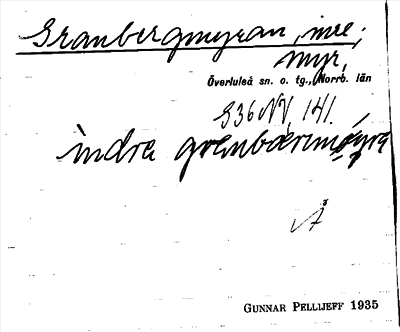 Granbergmyran, inre;
myr,
Överluleå sn. o. tg., Norrb. län
S36NV, 141.
indre
GUNNAR PELLIJEFF 1935